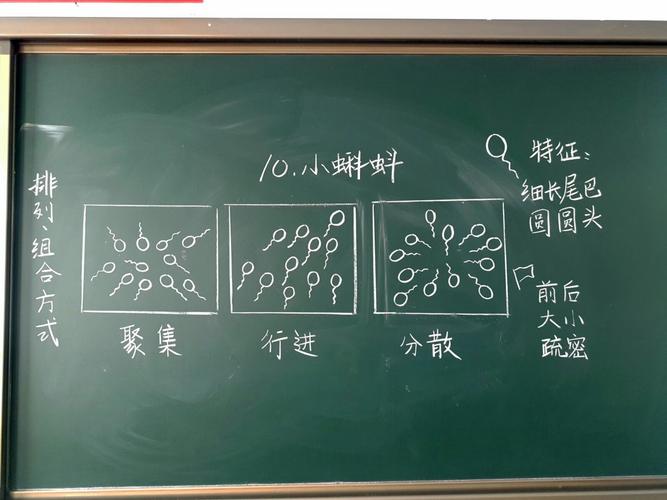 10.小蝌蚪
排列、组合方式
聚集
行进
分散
特征:
细长尾巴
圆圆头
前后
大小
疏密